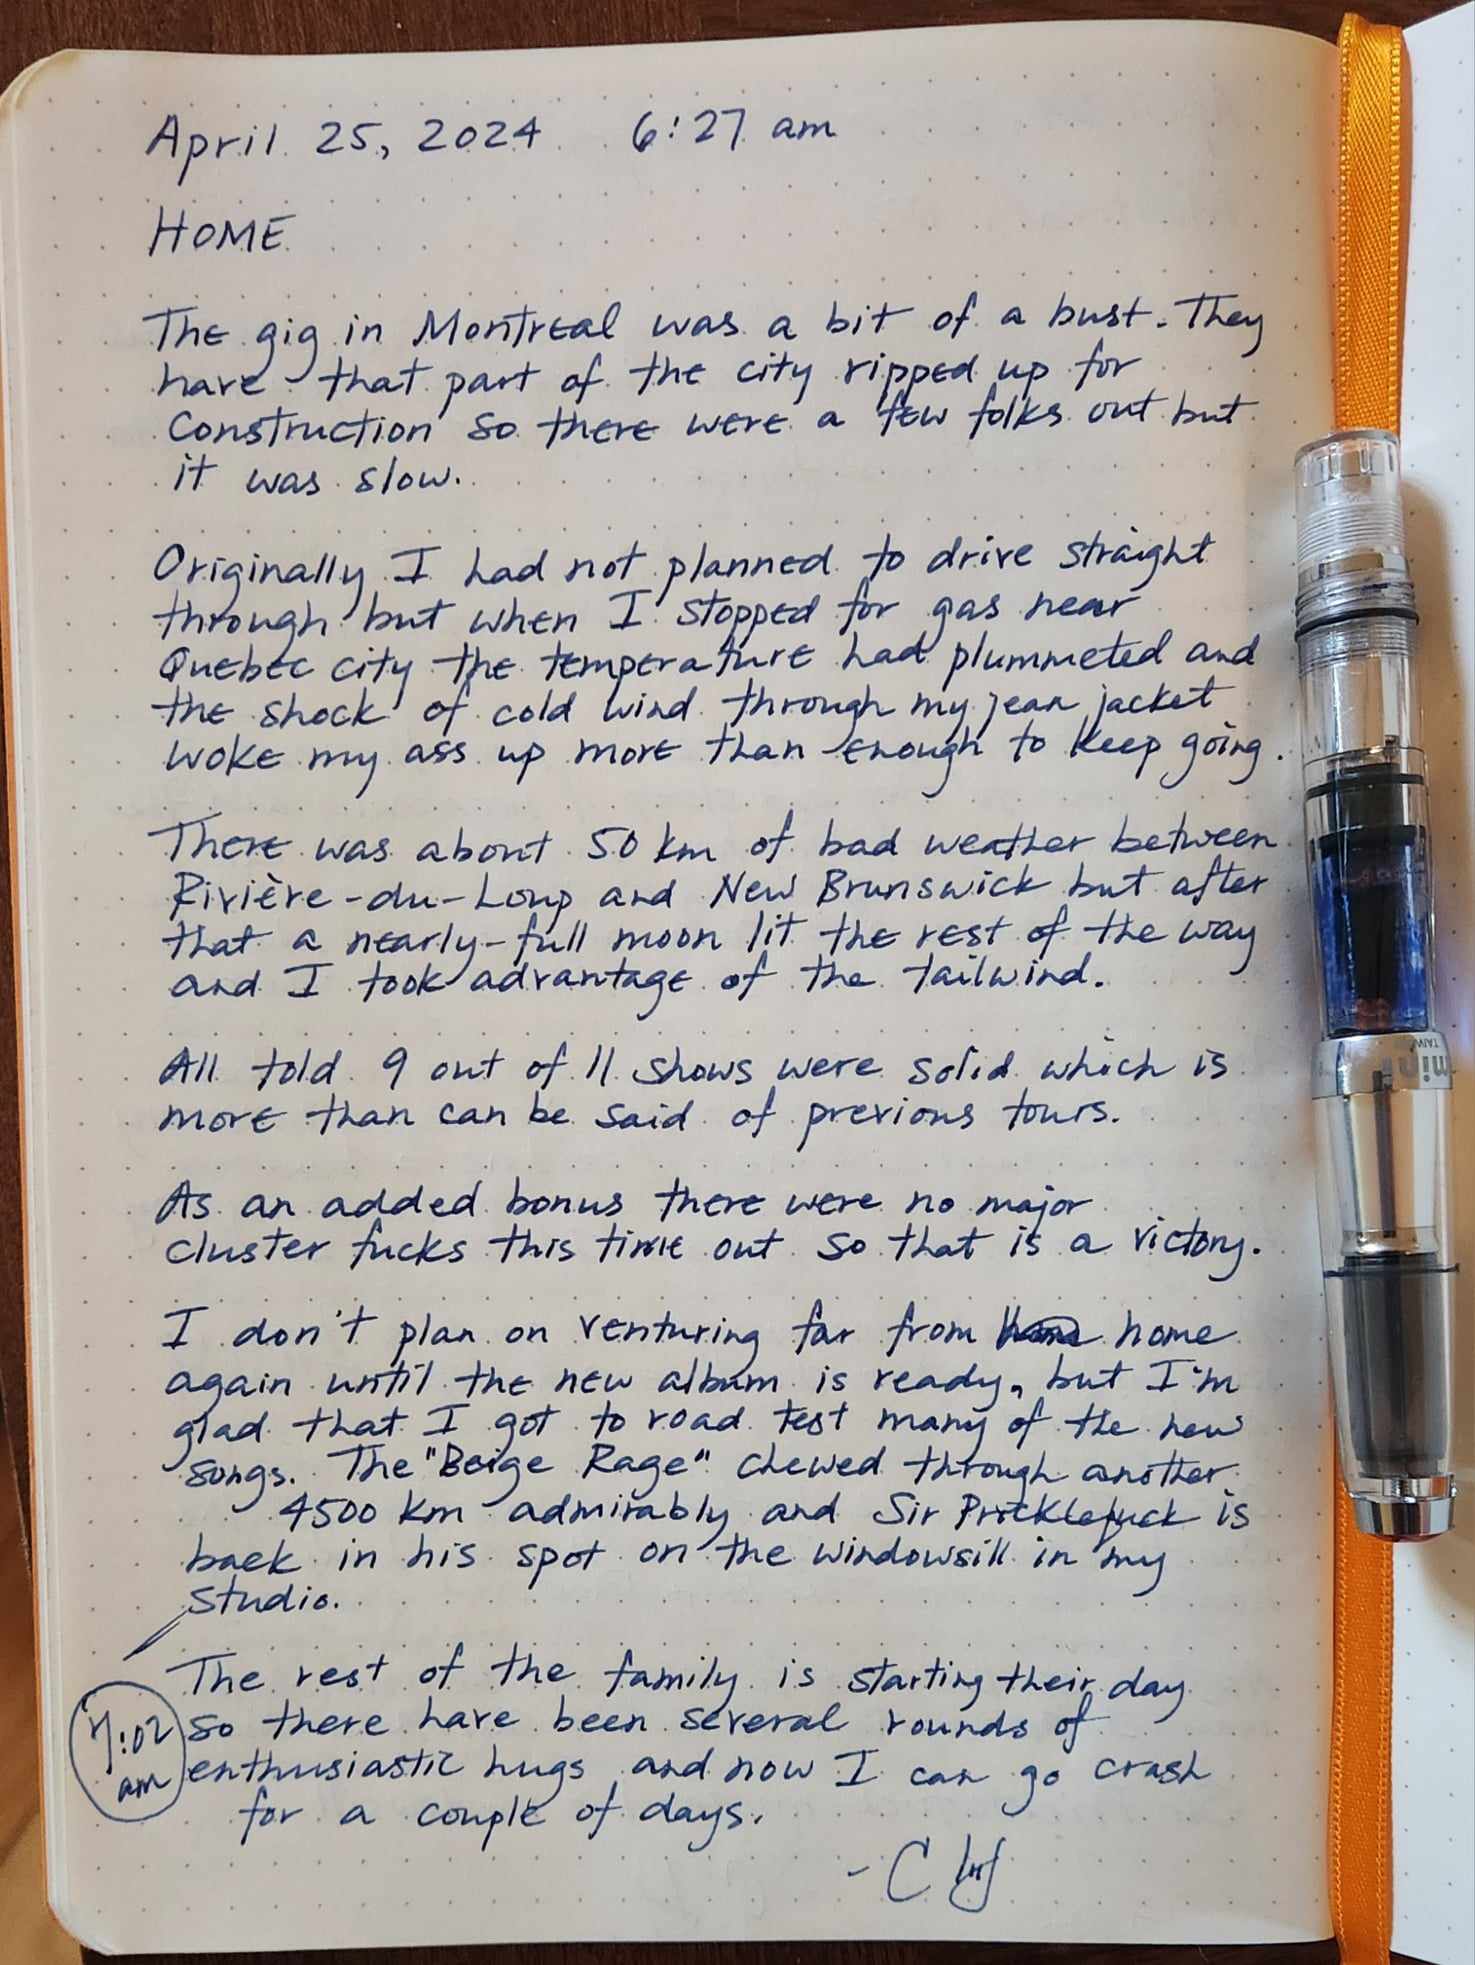 April 25, 2024 6:27 am
HOME
The gig in Montreal was a bit of a bust. They
have that part of the city ripped up for
construction so there were a few folks out but
it was slow.
Originally I had not planned to drive straight
through but when I stopped for gas near
Quebec city the temperature had plummeted and
the shock of cold wind through my jean jacket
woke my ass up more than enough to keep going.
There was about 50 km of bad weather between
Rivière-du-Loup and New Brunswick but after
that a nearly-full moon lit the rest of the way
and I took advantage of the tailwind.
All told 9 out of 11 shows were solid which is
more than can be said of previous tours.
As an added bonus there were no major
cluster fucks this time out so that is a victory.
I don't plan on venturing far from home
again until the new album is ready, but I'm
glad that I got to road test many of the new
songs. The "Beige Rage" chewed through another
4500 km admirably and Sir Pricklefuck is
back in his spot on the windowsill in my
studio.
The rest of the family is starting their day
so there have been several rounds of
enthusiastic hugs and now I can go crash
for a couple of days.
7:02
am
mini
TAIW